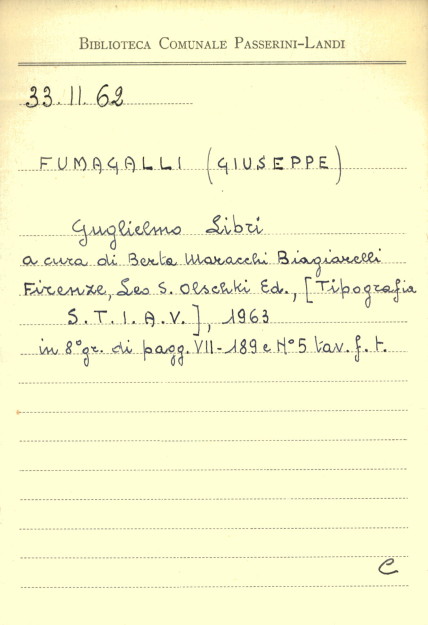 BIBLIOTECA COMUNALE PASSERINI-LANDI
33.II.62
FUMAGALLI (GIUSEPPE)
Guglielmo Libri
a cura di Berta Maracchi Biagiarelli
Firenze, Leo S. Olschki Ed., [Tipografia
S.T.I.A.V.], 1963
in 8° gr. di pagg. VII-189 e N° 5 tav. f. t.
C